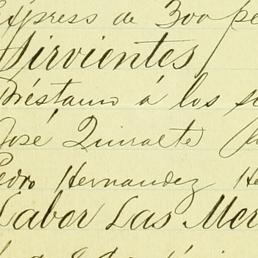 Express de 300 pe
Sirvientes
Préstamo á los s
José Quiralte
Pedro Hernandez He
Labor Las Mer